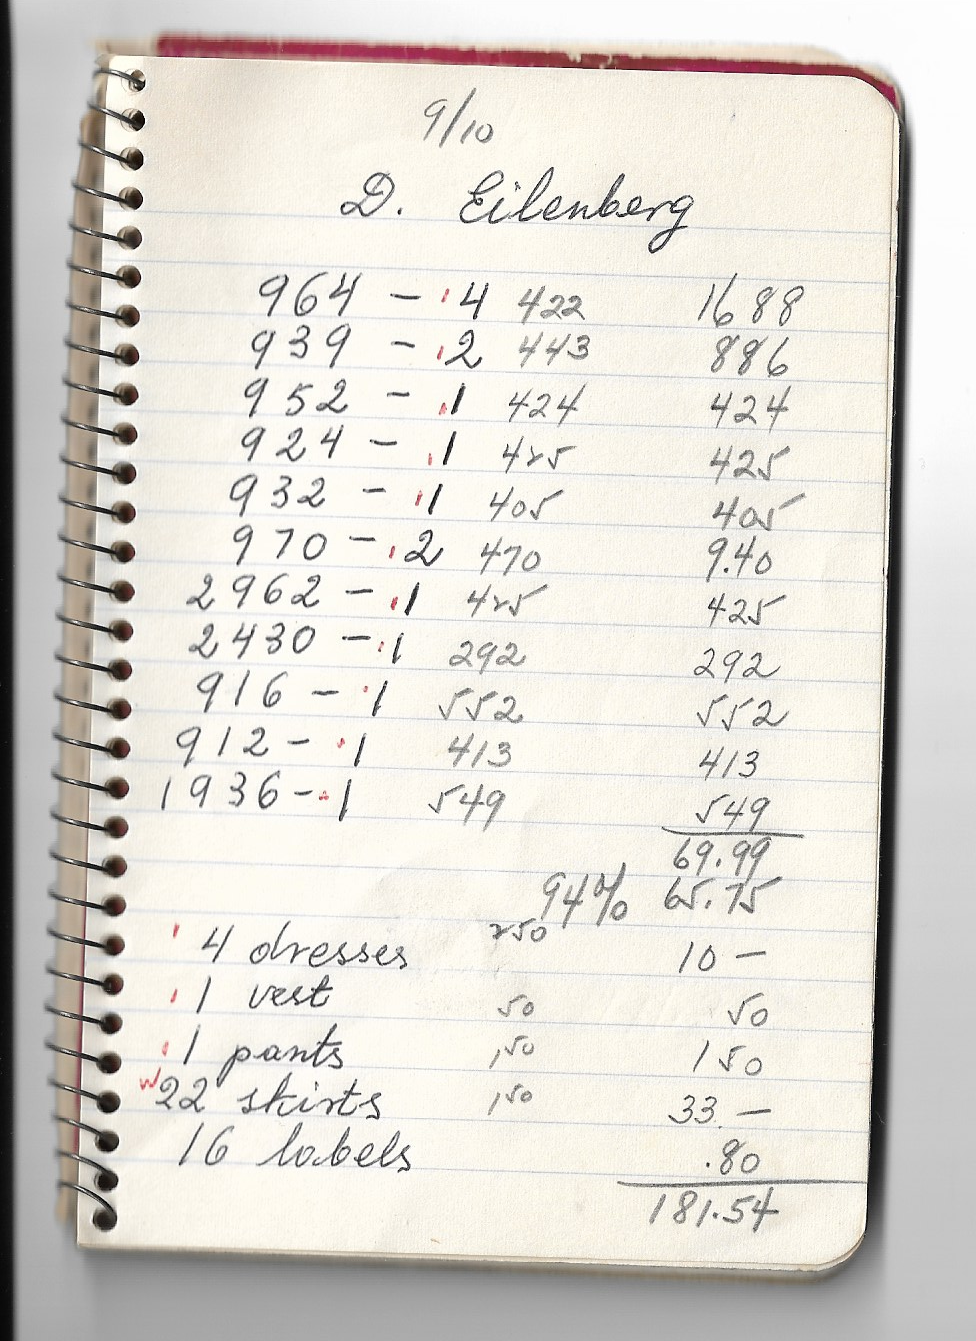 9/10
D. Eilenberg
964 - 4 422 1688
939 - 2 443 886
952 - 1 424 424
924 - 1 425 425
932 - 1 405 405
970 - 2 470 9.40
2962 - 1 425 425
2430 - 1 292 292
916 - 1 552 552
912 - 1 413 413
1936 - 1 549 549
69.99
94% 65.75
4 dresses 250 10 -
1 vest 50 50
1 pants 150 150
22 skirts 150 33. -
16 labels .80
181.54